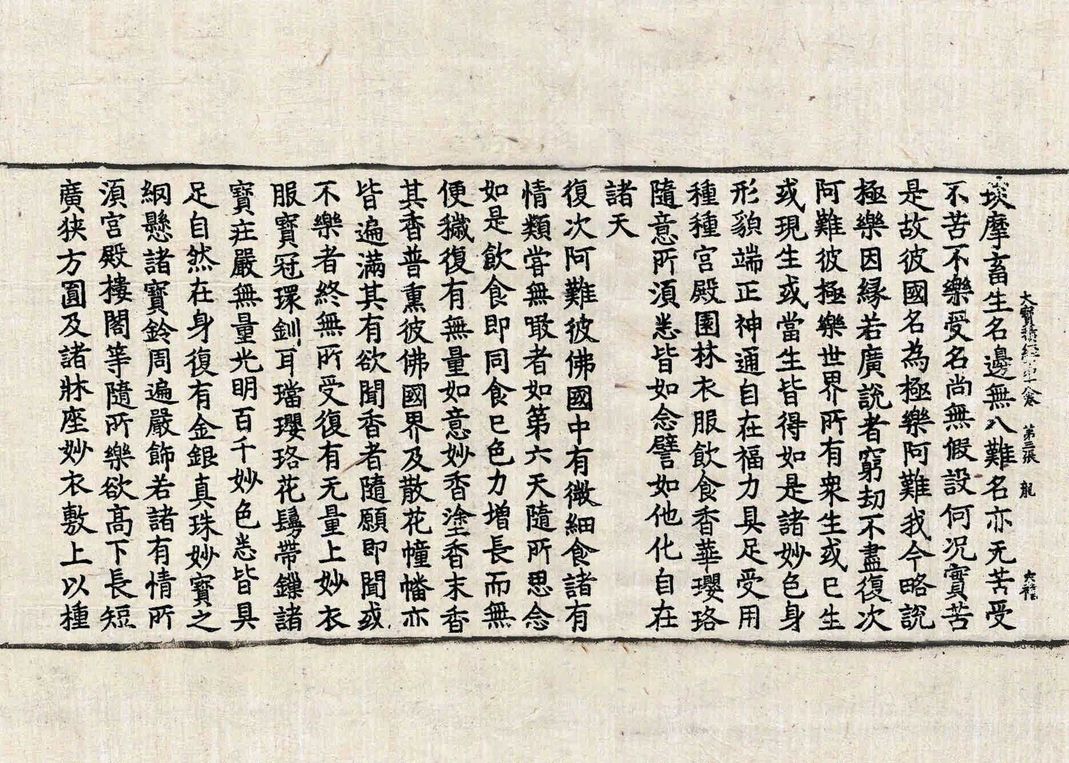 大寶積經第十八卷 第三張 龍
琰摩畜生名邊無八難名亦无苦受
不苦不樂受名尚無假設何況實苦
是故彼國名為極樂阿難我今略說
極樂因緣若廣說者窮劫不盡復次
阿難彼極樂世界所有衆生或已生
或現生或當生皆得如是諸妙色身
形貌端正神通自在福力具足受用
種種宮殿園林衣服飲食香華瓔珞
隨意所湏悉皆如念譬如他化自在
諸天
復次阿難彼佛國中有微細食諸有
情類甞無噉者如第六天隨所思念
如是飲食即同食已色力增長而無
便穢復有無量如意妙香塗香末香
其香普熏彼佛國界及散花幢幡亦
皆遍滿其有欲聞香者隨願即聞或
不樂者終無所受復有无量上妙衣
服寶冠環釧耳璫瓔珞花鬘帶鏁諸
寶莊嚴無量光明百千妙色悉皆具
足自然在身復有金銀真珠妙寶之
網懸諸寶鈴周遍嚴飾若諸有情所
湏宮殿樓閣等隨所樂欲高下長短
廣狹方圓及諸牀座妙衣敷上以種